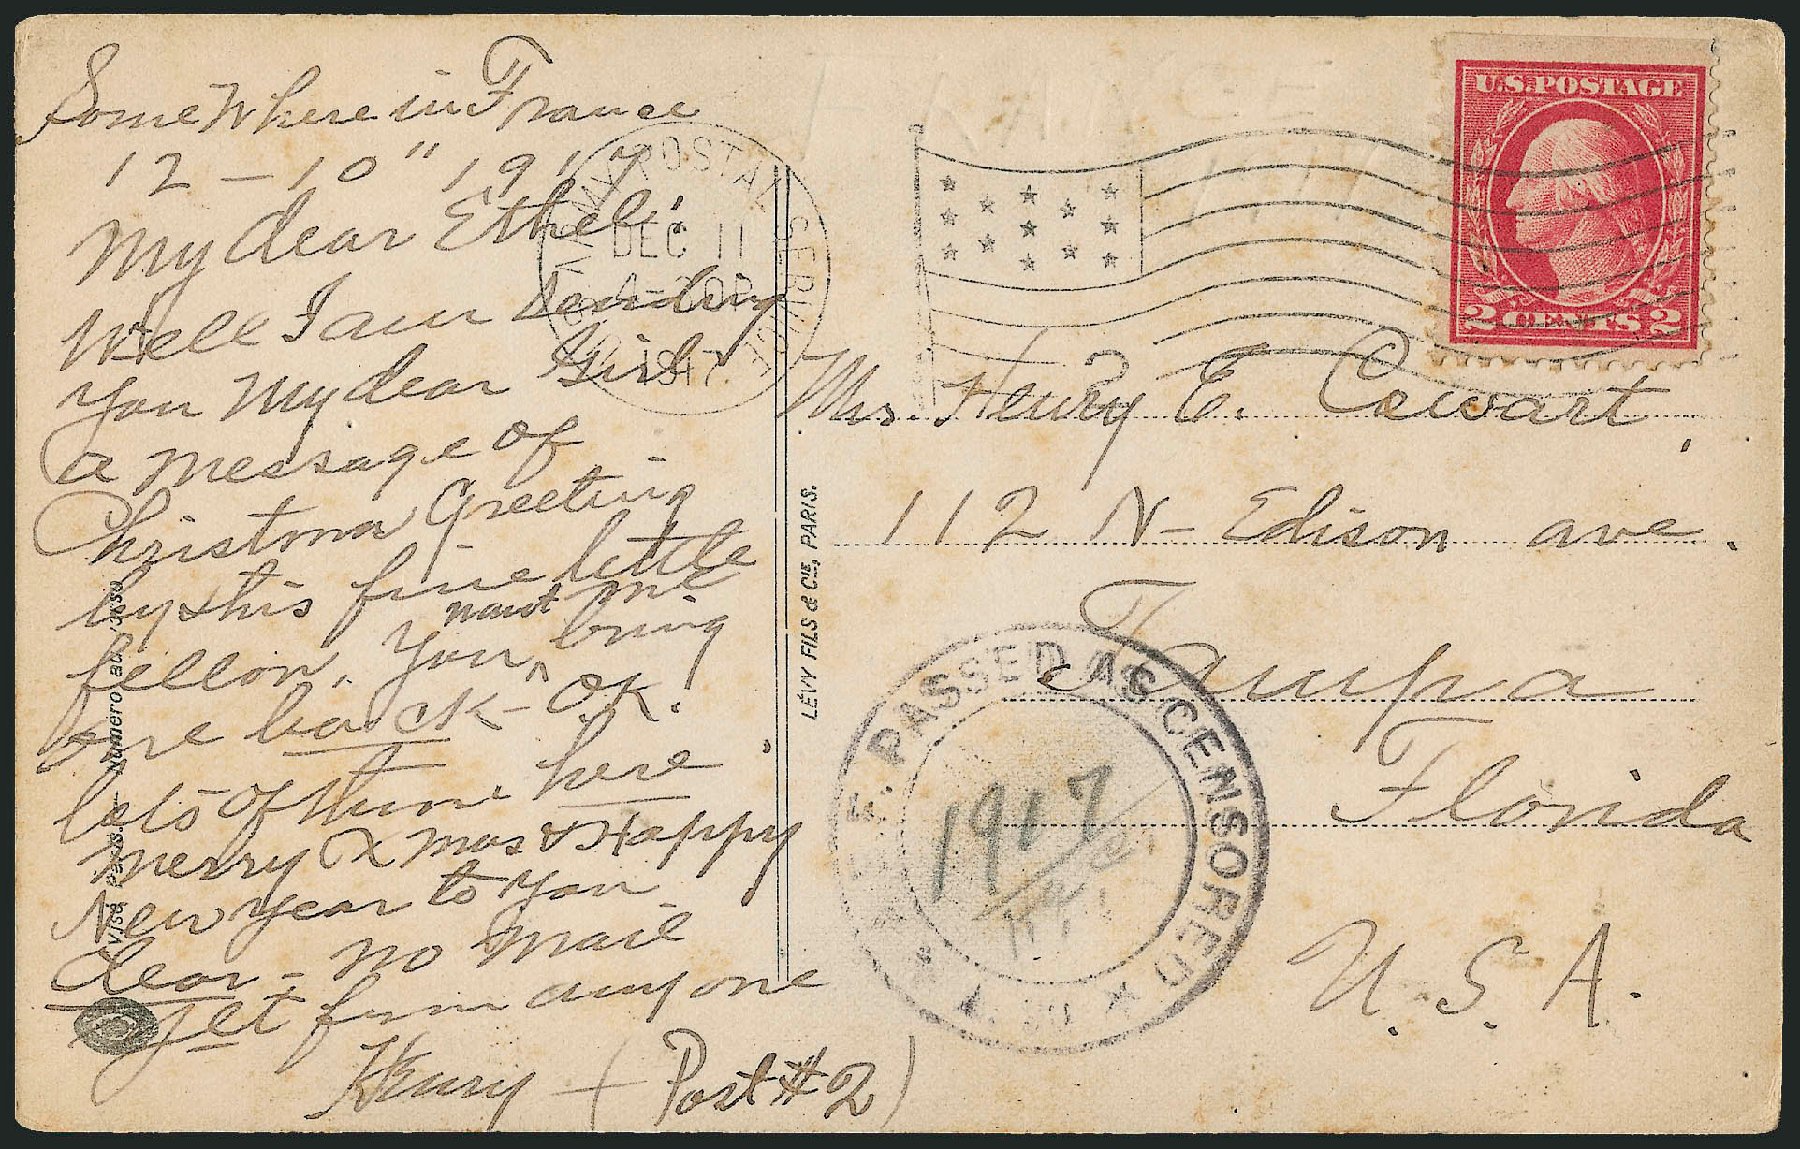 Somewhere in France
12 - 10" 1917
My dear Ethel:
Well I am sending
you my dear Girl
a message of
Christma Greeting
by this fine little
fellow. You must bring me
one back - OK.
lots of them here
Merry Xmas & Happy
New year to you
dear - no mail
yet from anyone
Henry - (Post #2)
U.S. ARMY POSTAL SERVICE
DEC 11
1917
U.S. POSTAGE
2 CENTS 2
Mrs. Henry E. Cowart,
112 N- Edison ave.
Tampa
Florida
U.S.A.
LÉVY FILS & CIE, PARIS.
PASSED AS CENSORED
1917
Visé Paris. — Numéro au verso